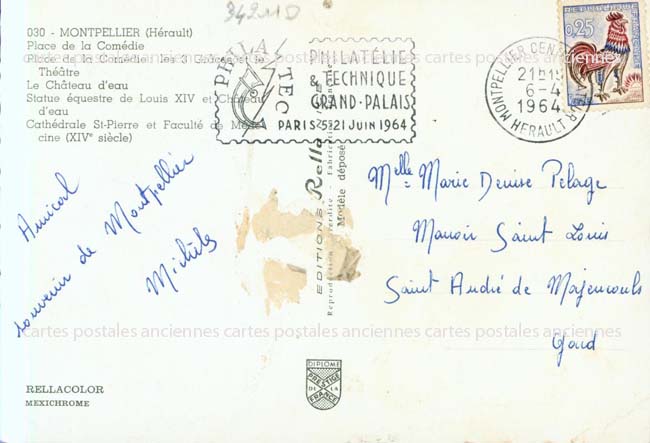 342110
030 - MONTPELLIER (Hérault)
Place de la Comédie
Place de la Comédie les 3 Grâces et le
Théâtre
Le Château d'eau
Statue équestre de Louis XIV et Château
d'eau
Cathédrale St-Pierre et Faculté de Méde-
cine (XIVe siècle)
PHILATEC
PHILATÉLIE
& TECHNIQUE
GRAND-PALAIS
PARIS 5-21 JUIN 1964
MONTPELLIER
21H15
6-4
1964
HERAULT
REPUBLIQUE
0,25
Amical
souvenir de Montpellier
Michèle
EDITIONS Rella
Reproduction interdite - Fabrication
Modèle déposé
Melle Marie Denise Pelage
Manoir Saint Louis
Saint André de Majencouls
Gard
cartes postales anciennes
cartes postales anciennes
cartes postales anciennes
cartes postales anciennes
RELLACOLOR
MEXICHROME
DIPLOME
PRESTIGE
DE LA
FRANCE